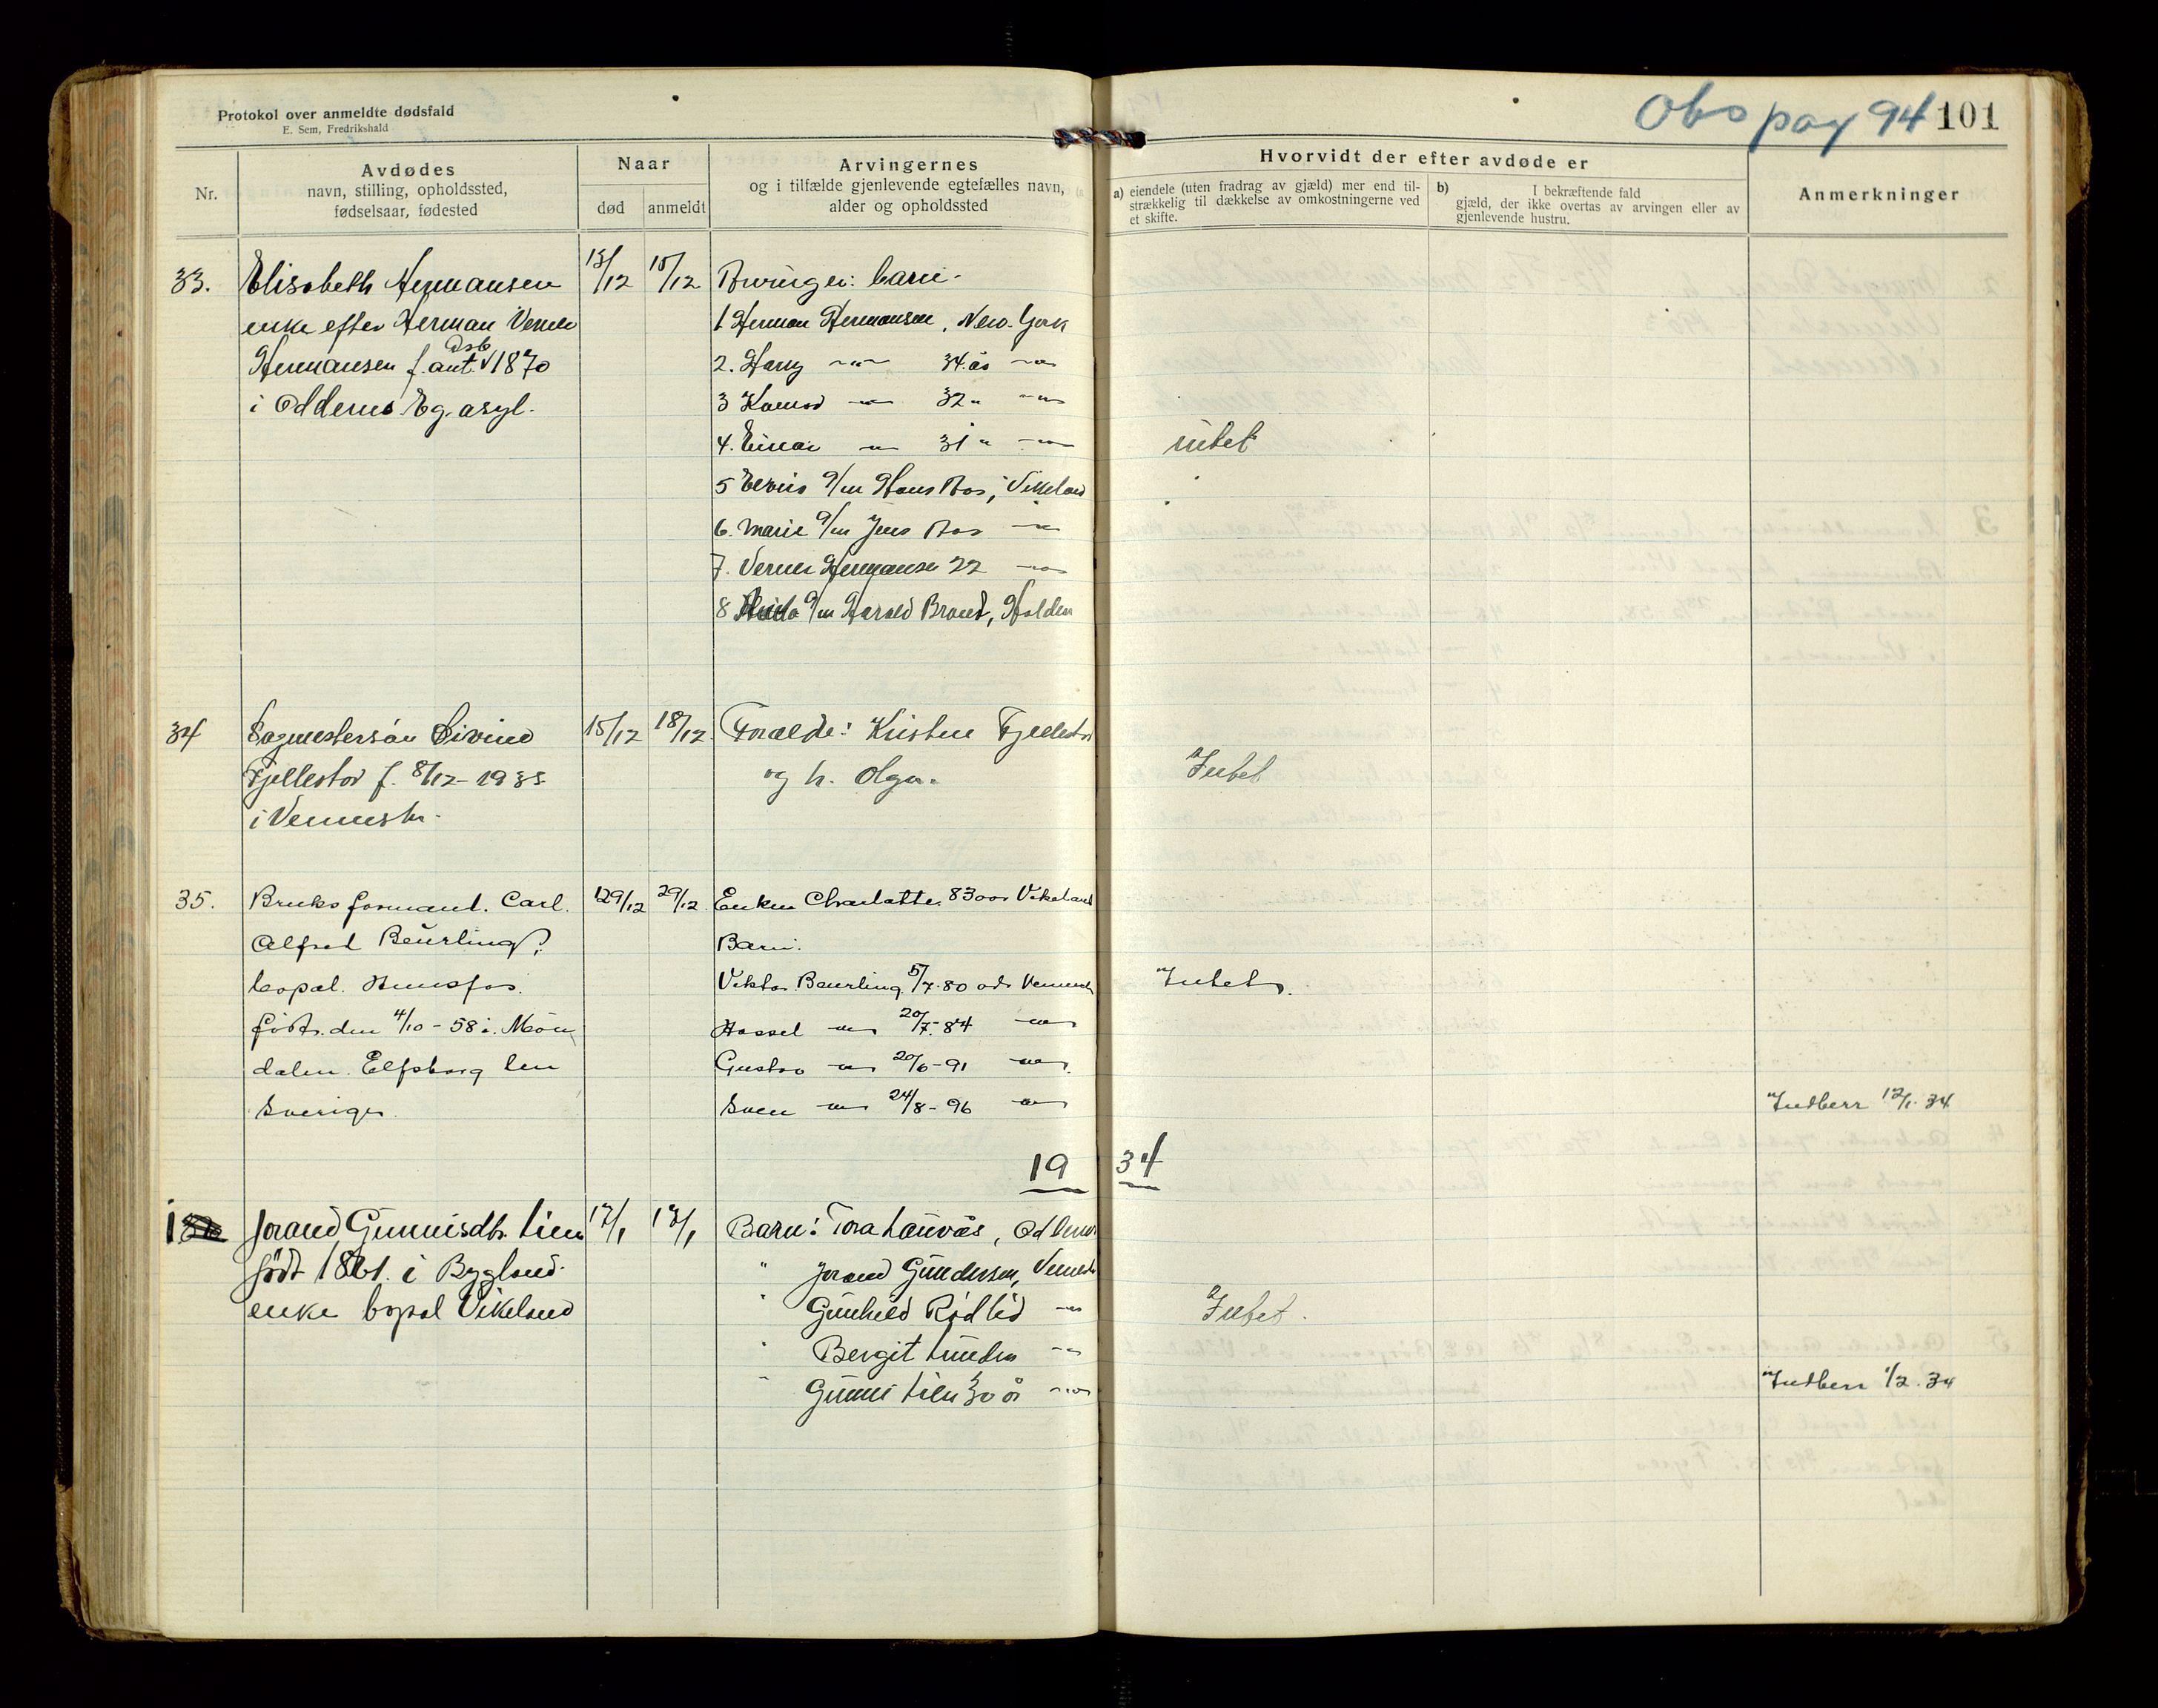 Protokol over anmeldte dødsfald
E. Sem, Fredrikshald
Obs pag 94
101
Nr.
Avdødes
navn, stilling, opholdssted,
fødselsaar, fødested
Naar
død
anmeldt
Arvingernes
og i tilfælde gjenlevende egtefælles navn,
alder og opholdssted
Hvorvidt der efter avdøde er
a) eiendele (uten fradrag av gjæld) mer end til-
strækkelig til dækkelse av omkostningerne ved
et skifte.
b) I bekræftende fald
gjæld, der ikke overtas av arvingen eller av
gjenlevende hustru.
Anmerkninger
33. Elisabeth Hermansen 13/12 15/12 Arvinger: barn.
enke efter Herman
1 Herman Hermansen, New-York
Hermansen f. ant. 1870
2. Harry -"- 34 år -"-
i Oddernes Eg. asyl.
3 -"- 32 " -"-
4. Einar -"- 31 " -"-
intet
5 g/m Hans Aas, Vikeland
6. Marie g/m Jens Aas -"-
7. Verner Hermansen 22 -"-
8 g/m Harald Brand, Halden
34 Sagmestersøn Eivind 15/12 18/12 Forældre: Kristen Fjellestad
Fjellestad f. 8/12-1933
og h. Olga.
Intet
i Vennesla.
35. Bruksformand. Carl. 29/12 29/12. Enken Charlotte. 83 aar Vikeland
Alfred Beurling
Barn:
bopæl. Hunsfos.
Viktor Beurling. 5/7-80 ads Vennesla
Intet.
født. den 4/10-58 i. Møn
Hassel -"- 20/7-84 -"-
dalen. Elfsborg len
Gustav -"- 20/6-91 -"-
Sverige.
Sven -"- 24/8-96 -"-
Indberr 12/1-34
1934
1 Jorand Gunnisdtr. Lien 17/1 17/1 Barn: Tora Lauvås, Oddernes
født 1861. i Bygland.
" Jorand Gundersen, Vennesla
enke bopæl Vikeland
" Gunhild Rødlid -"-
Intet.
" Bergit Lunden -"-
" Gunni Lien 30 år -"-
Indberr 1/2. 34